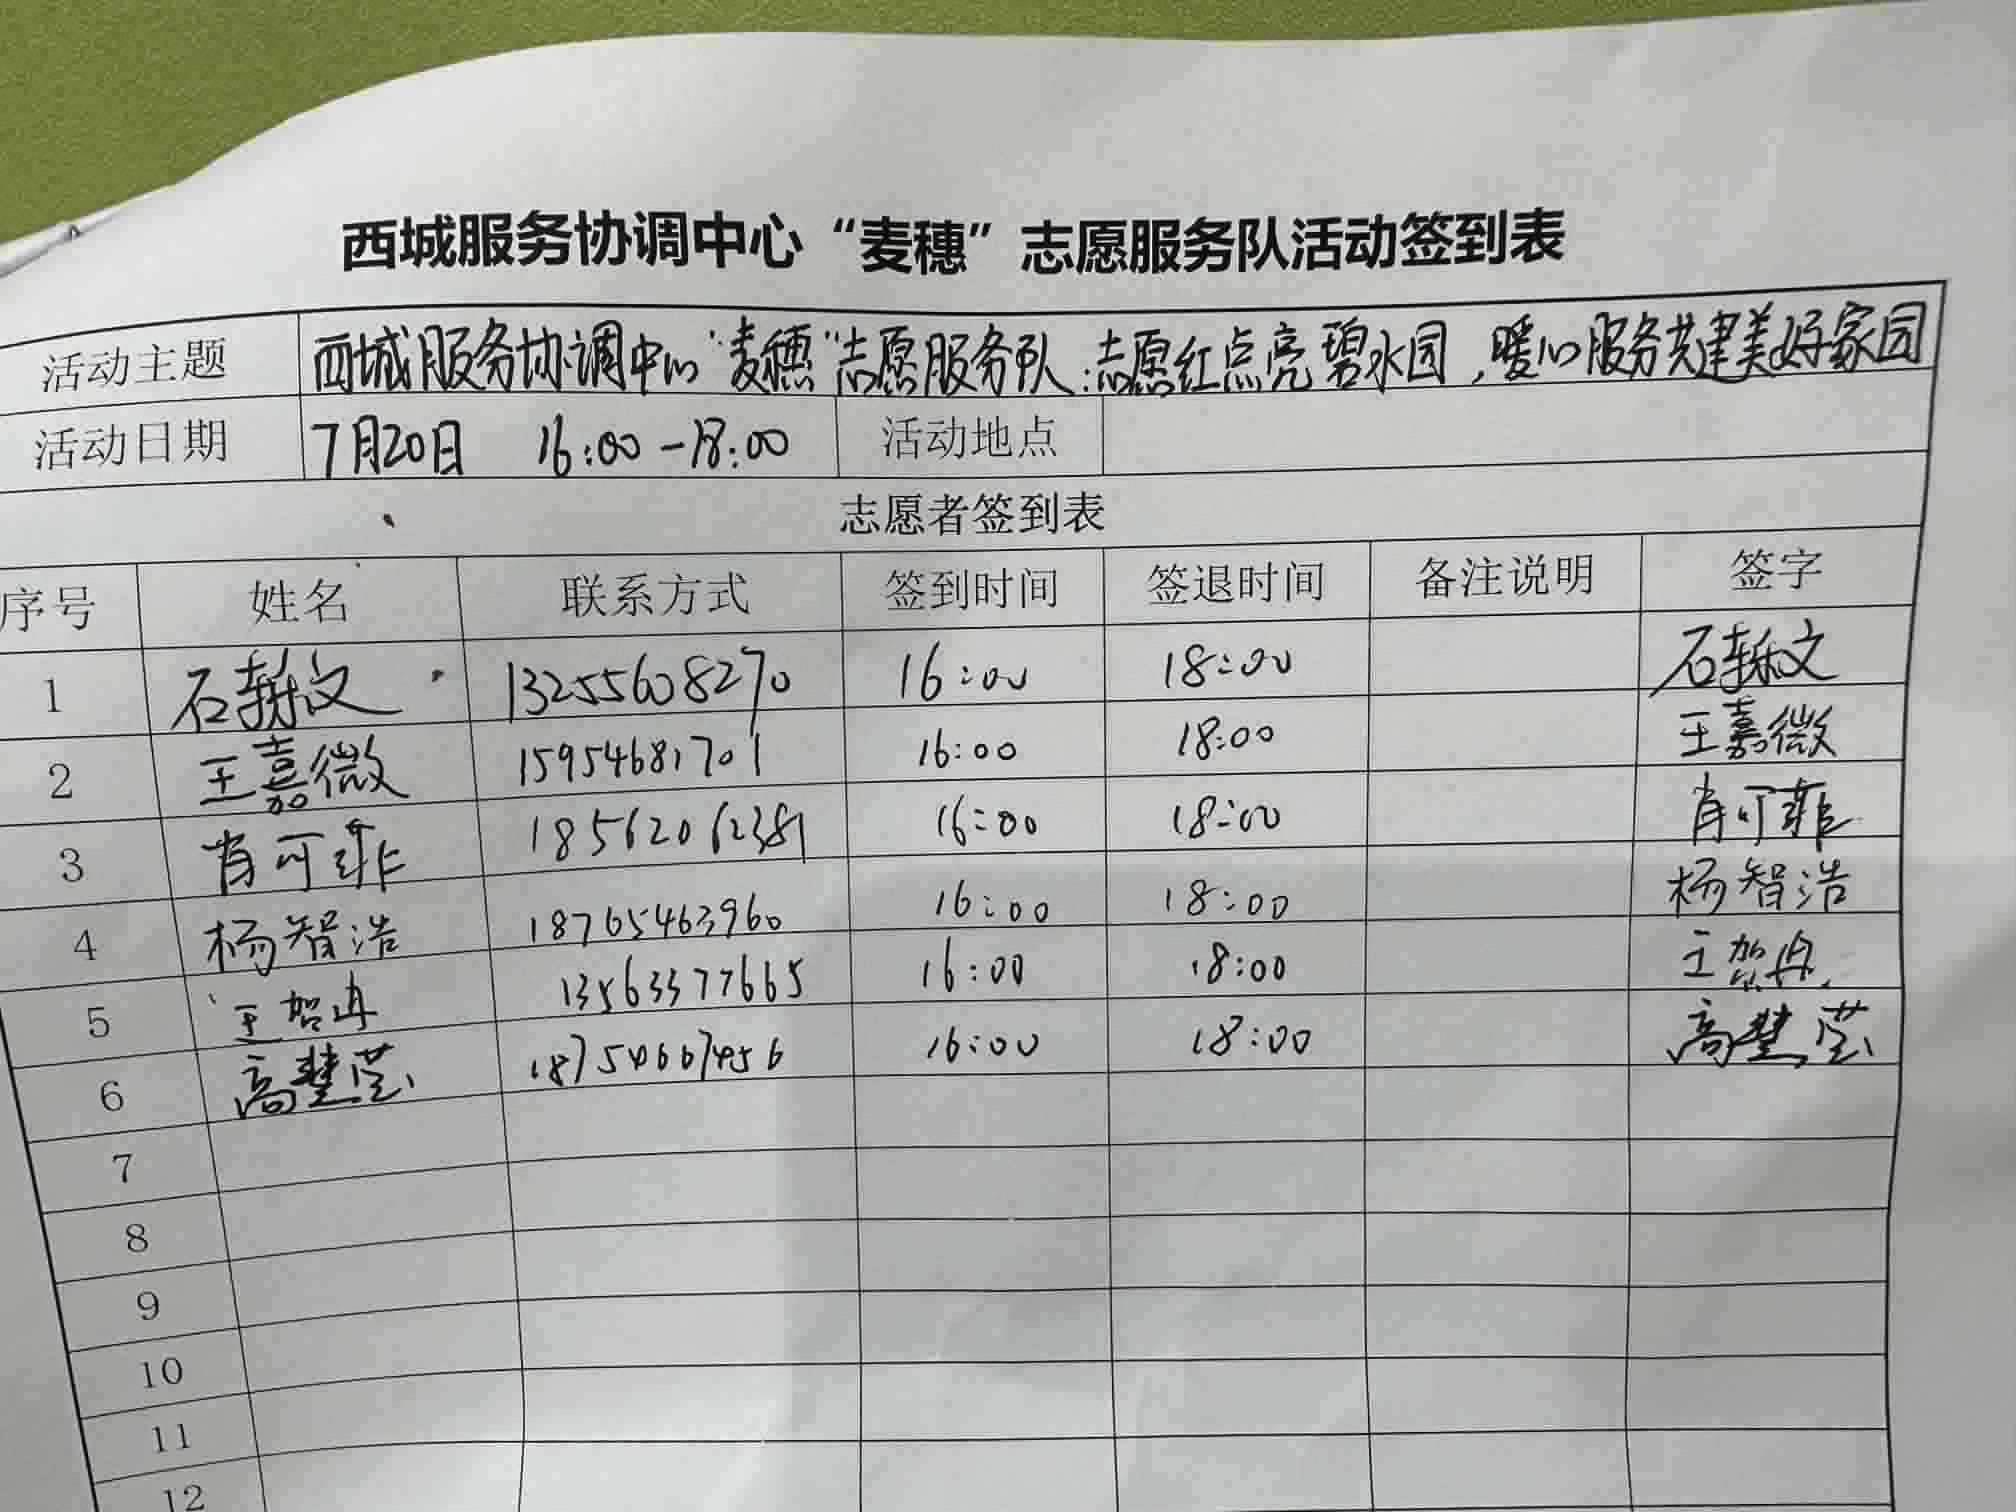 西城服务协调中心“麦穗”志愿服务队活动签到表
活动主题 西城服务协调中心“麦穗”志愿服务队:志愿红点亮碧水园,暖心服务共建美好家园
活动日期 7月20日 16:00-18:00 活动地点
志愿者签到表
序号 姓名 联系方式 签到时间 签退时间 备注说明 签字
1 石 文 13255608270 16:00 18:00 石 文
2 王嘉微 15954681701 16:00 18:00 王嘉微
3 肖可菲 18562062381 16:00 18:00 肖可菲
4 杨智浩 18765463960 16:00 18:00 杨智浩
5 王贺冉 13563377665 16:00 18:00 王贺冉
6 高慧莹 18754667456 16:00 18:00 高慧莹
7
8
9
10
11
12